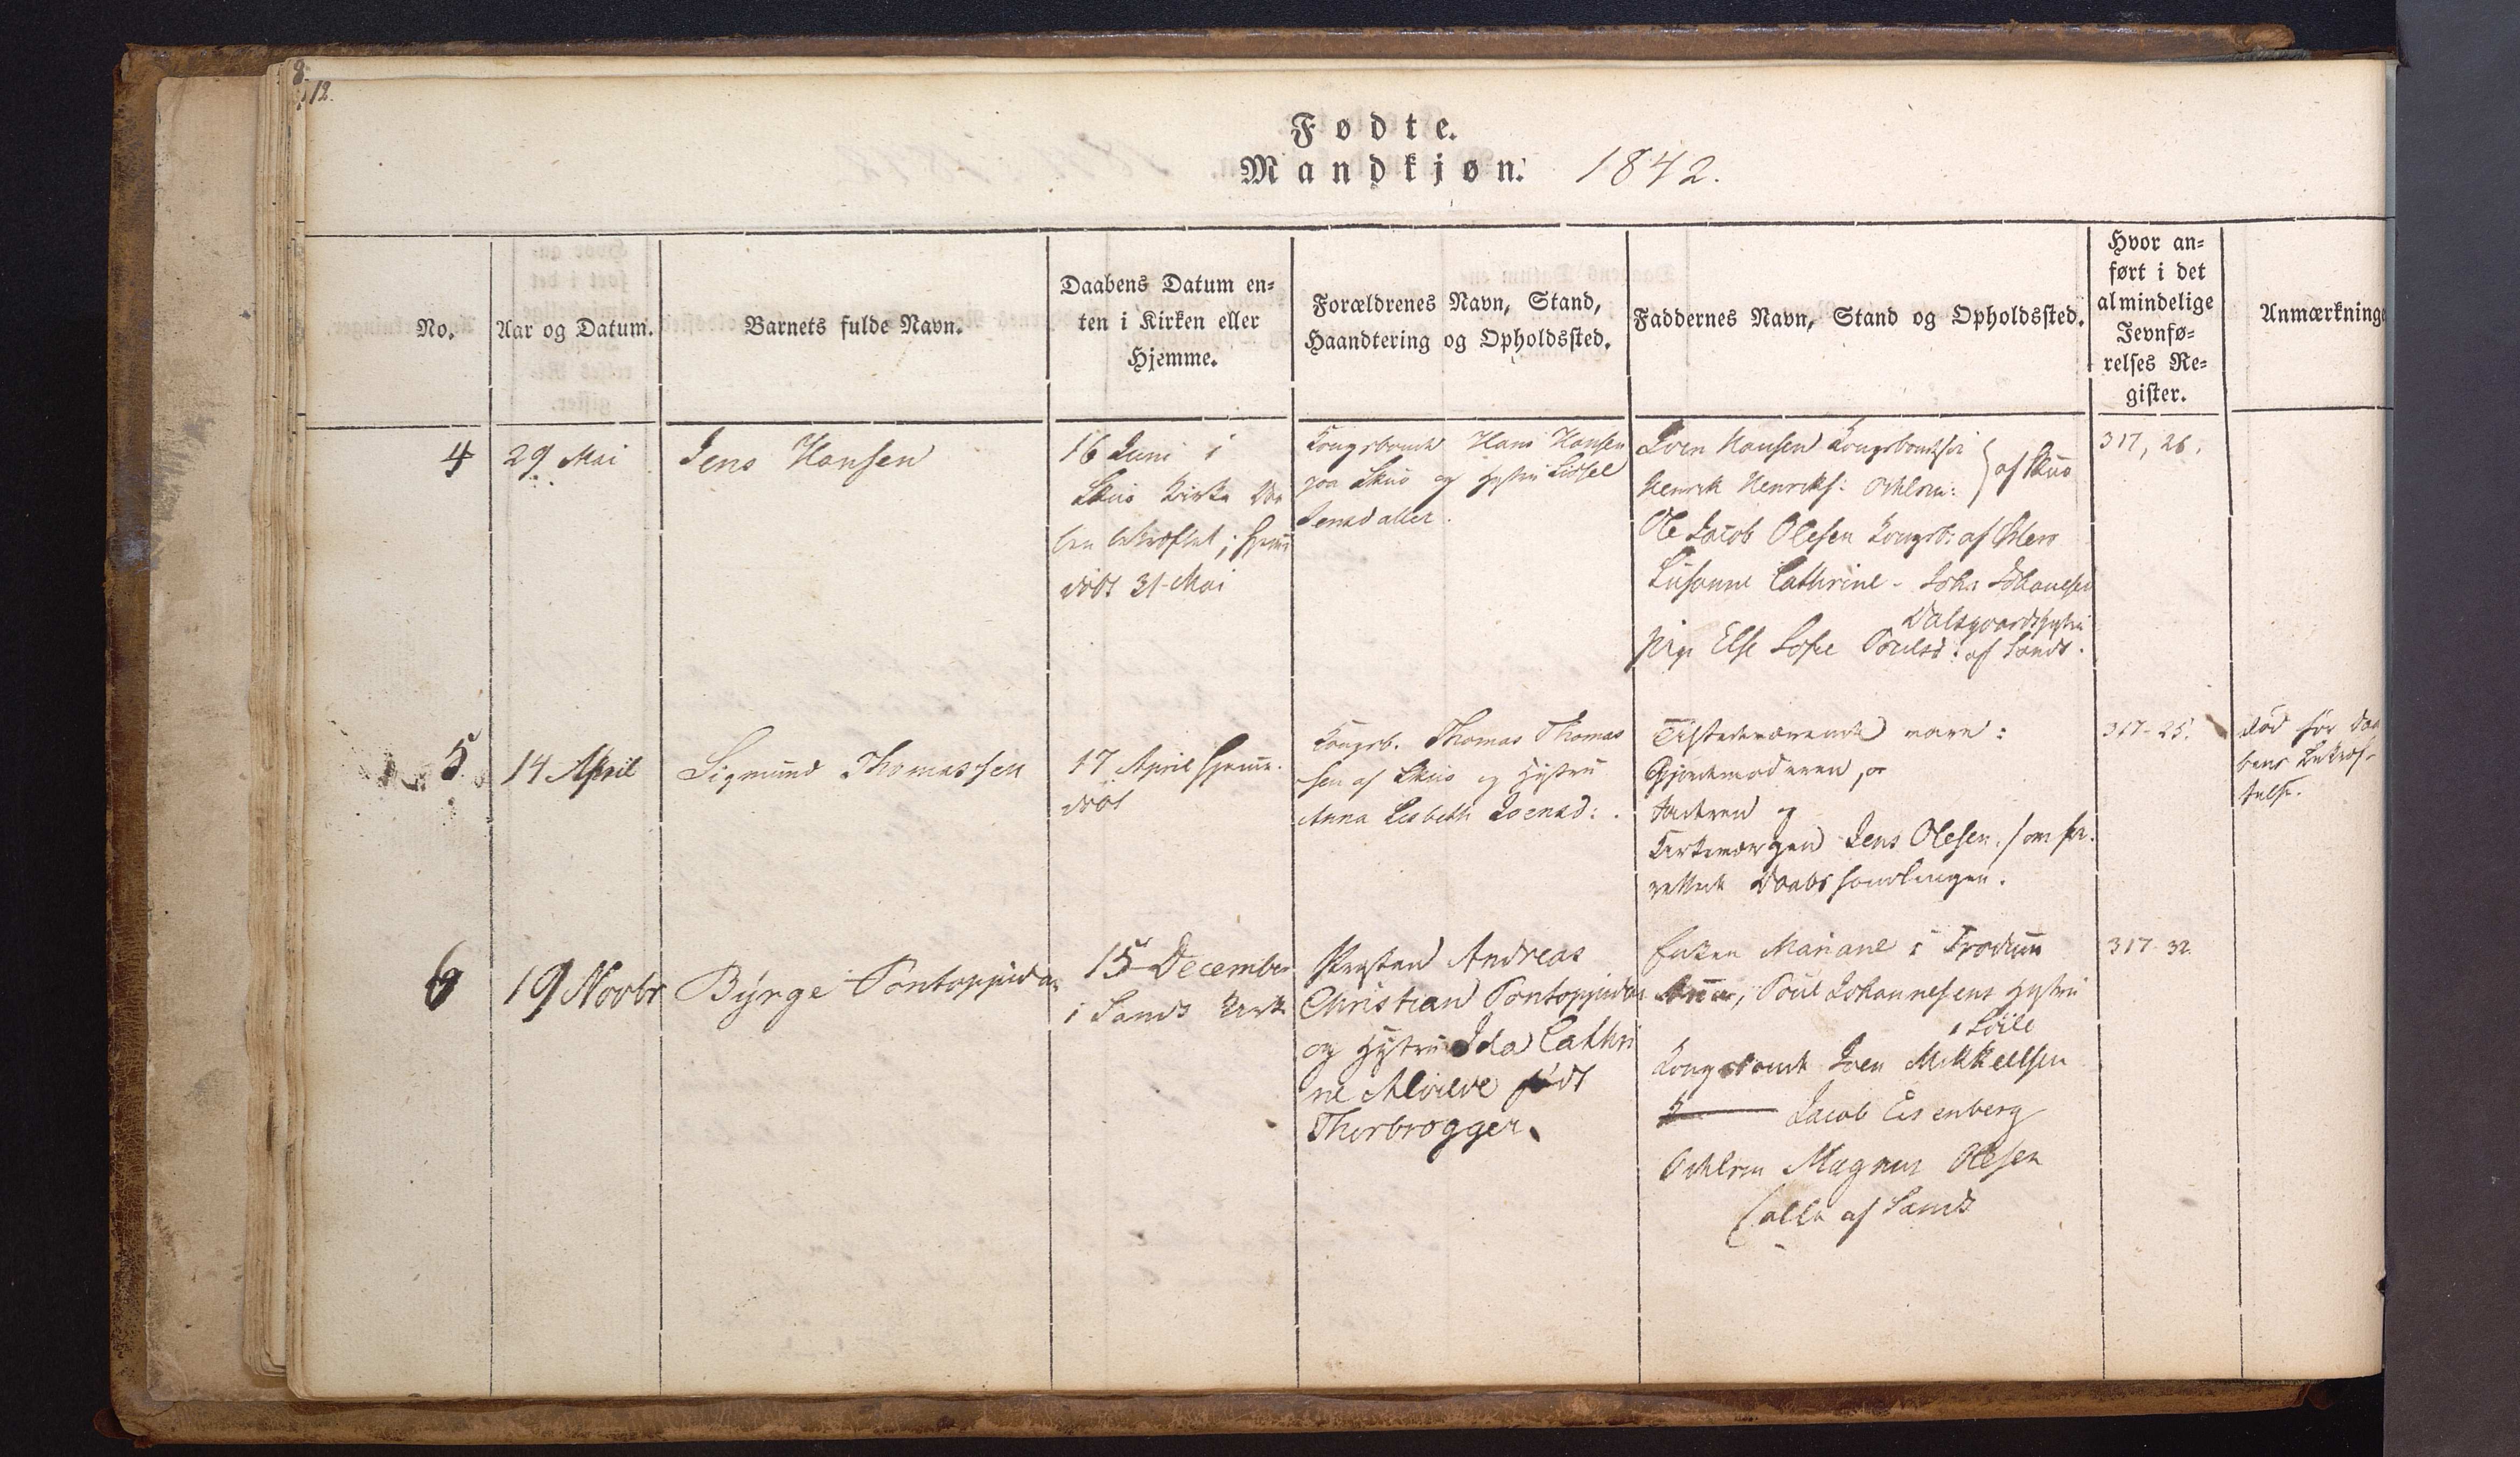 8
12.
Fødte.
Mandkjøn. 1842.
No.
Aar og Datum.
Barnets fulde Navn.
Daabens Datum en-
ten i Kirken eller
Hjemme.
Forældrenes Navn, Stand,
Haandtering og Opholdssted.
Faddernes Navn, Stand og Opholdssted.
Hvor an-
ført i det
almindelige
Jevnfø-
relses Re-
gister.
Anmærkninge
4
29 Mai
Jens Hansen
16 Juni i
Skuø Kirke Daa
ben bekræftet; hjemme
døbt 31 Mai
Kongsbonde Hans Hansen
paa Skuø og Hustru Sidsel
Jensdatter.
Joen Hansen
Henrik Henriks: Odelsm:
af Skuø
Ole Jacob Olesen Kongsb: af
Susanne Cathrine - Johs Johannesen
Dalsgaards Hustru
pige Else Sofie Poulsd: af Sand.
317, 26.
5
14 April
Sigmund Thomassen
17 April hjemme
døbt
Kongsb. Thomas Thomas
sen af Skuø og Hustru
Anna Lisbeth Joensd:.
Tilstedeværende vare:
Gjordemoderen,
Faderen og
Kirkeværgen Jens Olesen, som for-
rettede Daabshandlingen.
317-25.
død før Daa
bens Bekræf-
telse.
6
19 Novbr
Byrge Pontoppidan
15 December
i Sands Kirke
Præsten Andreas
Christian Pontoppidan
og Hustru Ida Cathri
ne Alvilde født
Thorbrøgger.
Enken Mariane i Trødum
Anna, Poul Johannesens Hustru
Kongsbonde Joen Mikkelsen
Jacob Eisenberg
Odelsm Magnus Olesen
(alle af Sand
317-32.